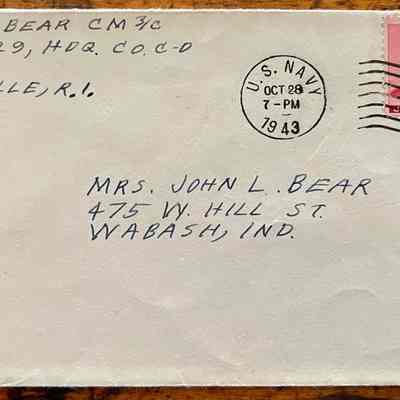 BEAR CM 3/C
29, HDQ. CO. C-D
LLE, R.I.
U.S. NAVY
OCT 28
7-PM
1943
MRS. JOHN L. BEAR
475 W. HILL ST.
WABASH, IND.